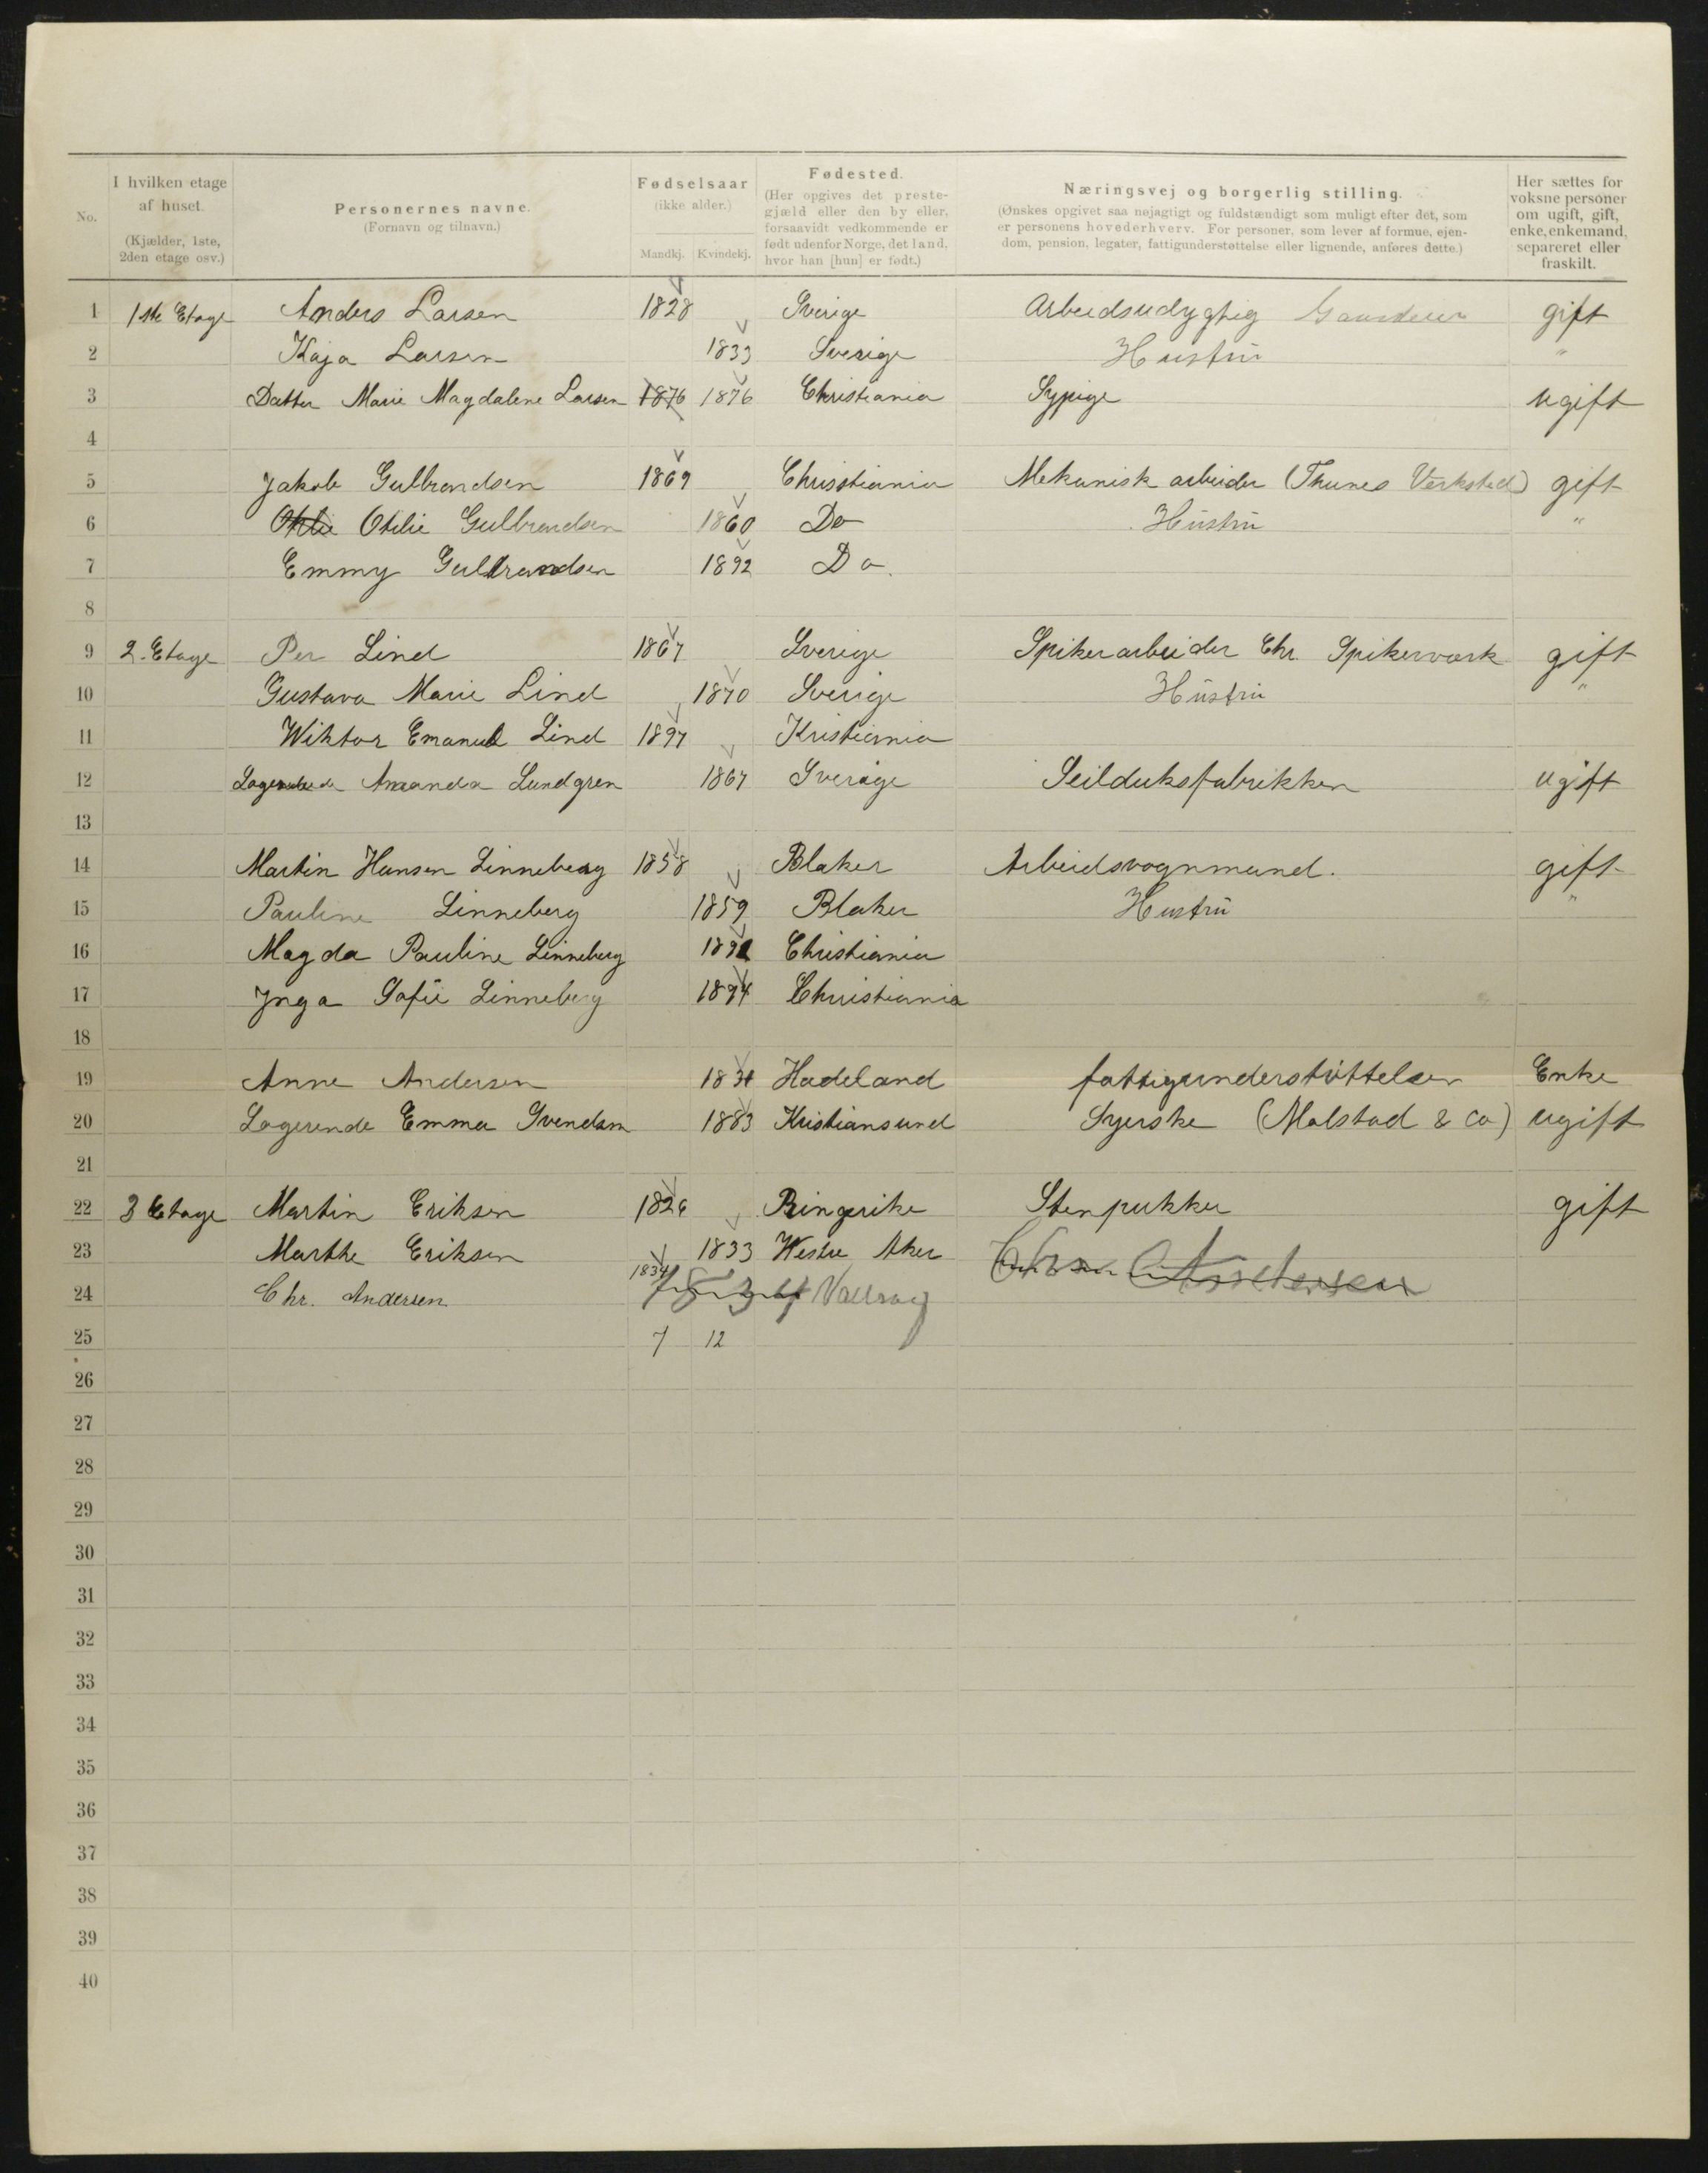 No. I hvilken etage af huset. (Kjælder, 1ste, 2den etage osv.) Personernes navne. (Fornavn og tilnavn.) Fødselsaar (ikke alder.) Mandkj. Kvindekj. Fødested. (Her opgives det prestegjæld eller den by eller, forsaavidt vedkommende er født udenfor Norge, det land, hvor han [hun] er født.) Næringsvej og borgerlig stilling. (Ønskes opgivet saa nøjagtigt og fuldstændigt som muligt efter det, som er personens hovederhverv. For personer, som lever af formue, ejendom, pension, legater, fattigunderstøttelse eller lignende, anføres dette.) Her sættes for voksne personer om ugift, gift, enke, enkemand, separeret eller fraskilt.
1 1ste Etage Anders Larsen 1828 Sverige Arbeidsudygtig gift
2 Kaja Larsen 1833 Sverige Hustru "
3 Datter Marie Magdalene Larsen 1876 1876 Christiania Sypige ugift
4
5 Jakob Gulbrandsen 1869 Chrisstiania Mekanisk arbeider (Thunes Verksted) gift
6 Otilie Gulbrandsen 1860 Do Hustru "
7 Emmy Gulbrandsen 1892 Do.
8
9 2. Etage Per Lind 1867 Sverige Spikerarbeider Chr. Spikerværk gift
10 Gustava Marie Lind 1870 Sverige Hustru "
11 Wiktor Emanuel Lind 1897 Kristiania
12 Amanda Lundgren 1867 Sverige Seilduksfabrikken ugift
13
14 Martin Hansen Linneberg 1858 Blaker Arbeidsvognmand. gift
15 Pauline Linneberg 1859 Blaker Hustru "
16 Magda Pauline Linneberg Christiania
17 Inga Sofie Linneberg 1894 Christiania
18
19 Anne Andersen Hadeland fattigunderstøttelse Enke
20 Logerende Emma Svendsen 1883 Kristiansund Syerske (Molstad & Co) ugift
21
22 3 Etage Martin Eriksen 1826 Ringerike Stenpukker gift
23 Marthe Eriksen 1833 Westre Aker
24 Chr. Andersen 1834 1834
25 7 12
26
27
28
29
30
31
32
33
34
35
36
37
38
39
40